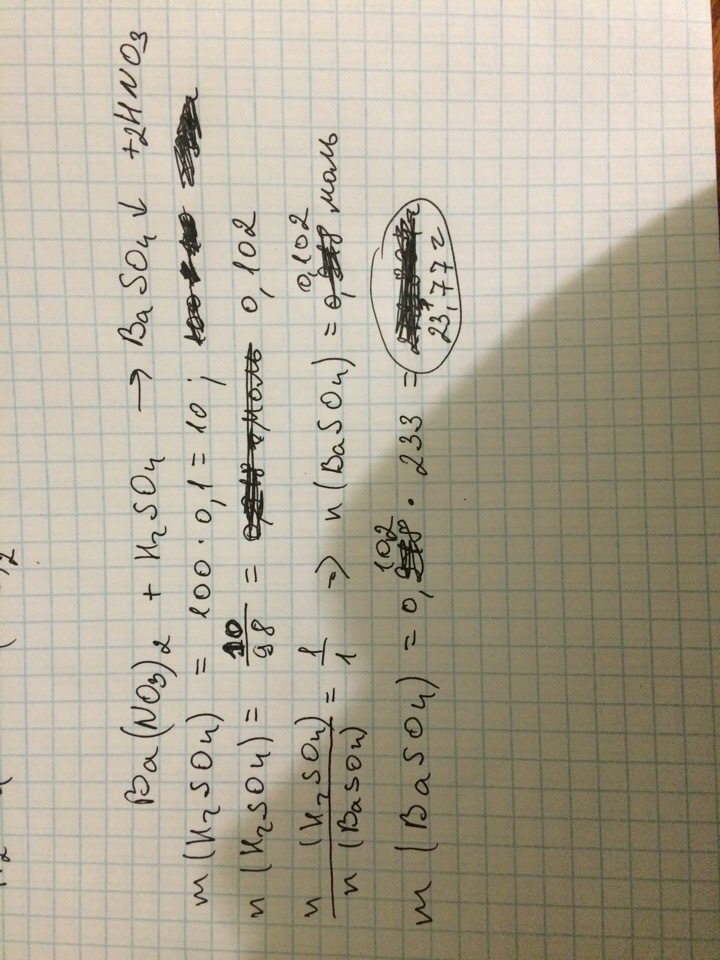 Ba(NO3)2 + H2SO4 → BaSO4↓ + 2HNO3
m(H2SO4) = 100·0,1 = 10;
n(H2SO4) = 10/98 = 0,102
n(H2SO4)/n(BaSO4) = 1/1 ⇒ n(BaSO4) = 0,102 моль
m(BaSO4) = 0,102 · 233 = 23,77 г